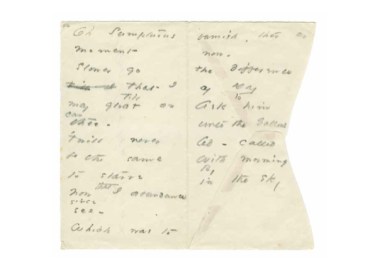 Oh Sumptuous
moment
Slower go
That I
Till
may gloat on
thee
'Twill never
be the same
to starve
Now I abundance
since
see -
Which was to
famish, then or
now -
the difference
of Day
to
Ask him
unto the Gallows
led - called
With morning
By
in the sky